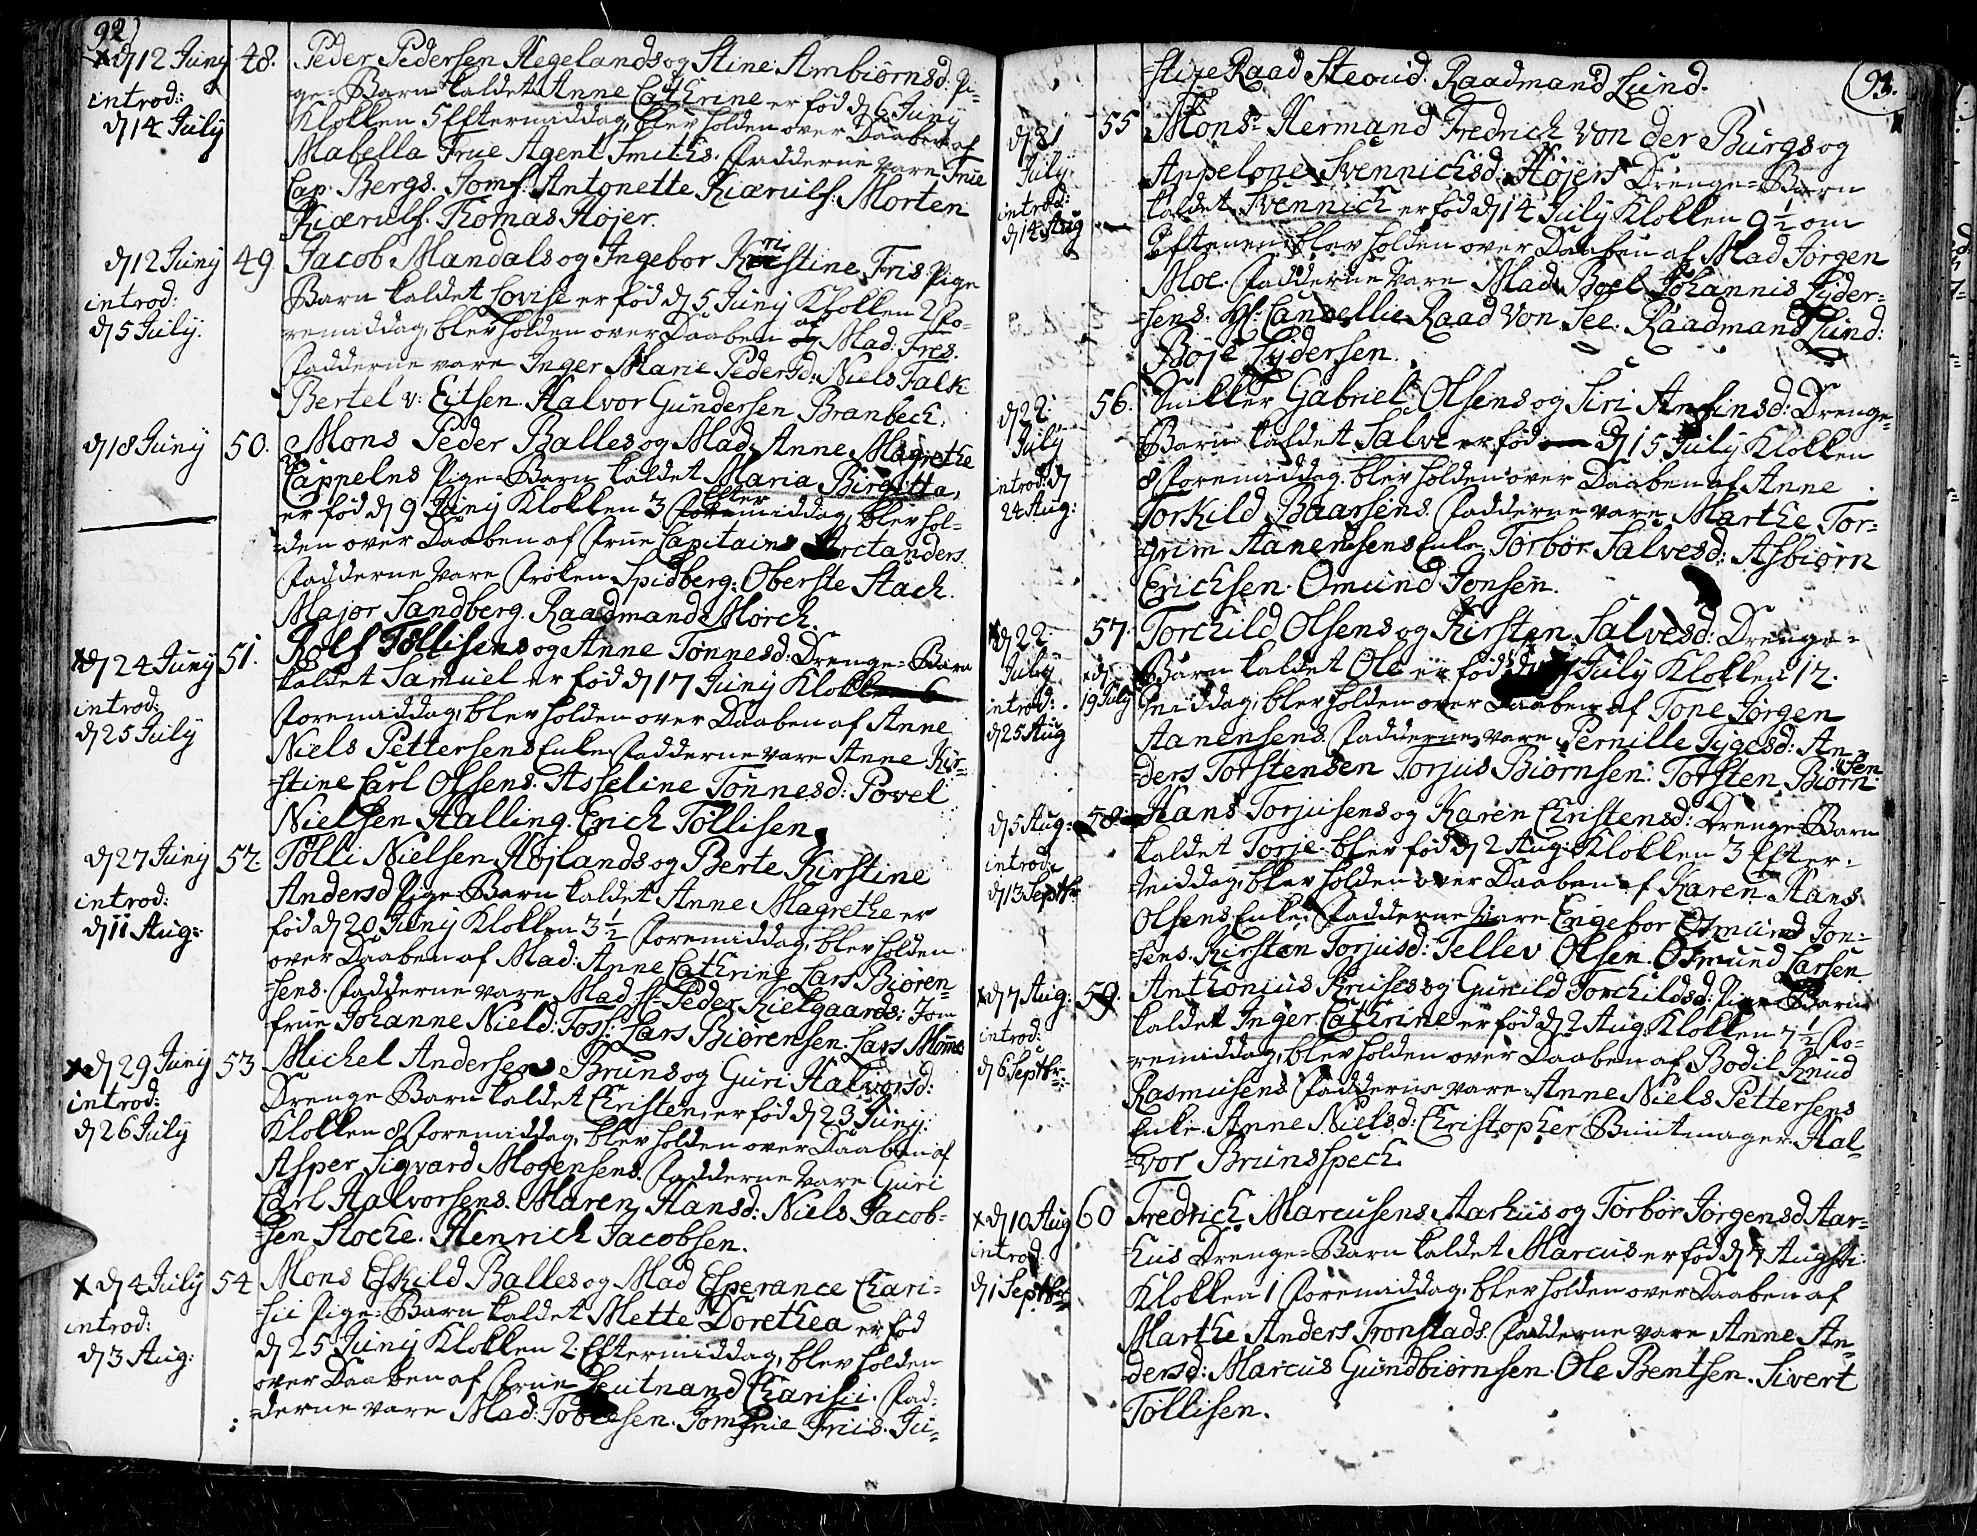 92)
d 12 Junÿ 48. Peder Pedersen Hegelands og Stine Ambiørnsd: Pi-
introd: ge-Barn kaldet Anne Cathrine er fød d 6 Junÿ
d 14 Julÿ Klokken 5 Eftermiddag, blev holden over Daaben af
Mabella Frue Agent Smiths. Fadderne vare Frue
Cap: Bergs. Jomf: Antonette Kiærulf. Morten
Kiærulf. Thomas Højer.
d 12 Junÿ 49. Jacob Mandals og Ingebor Kristine Friis Pige
introd: Barn kaldet Lovise er fød d 5 Junÿ Klokken 2 Fo-
d 5 Julÿ. remiddag, blev holden over Daaben af Mad: Fres.
Fadderne vare Inger Marie Pedersd: Niels Falk
Bertel v: Eitsen. Halvor Gundersen Branbech.
d 18 Junÿ 50. Mons Peder Balles og Mad Anne Magrethe
Cappelns Pige-Barn kaldet Maria Birgitta,
er fød d 9 Junÿ Klokken 3 Eftermiddag, blev hol-
den over Daaben af Frue Capitains Arctanders.
Fadderne vare Frøken Spidberg: Oberste Stach.
Major Sandberg. Raadmand Mørch.
d 24 Junÿ 51. Rolf Tollisens og Anne Tønnesd: Drenge-Barn
introd: kaldet Samuel er fød d 17 Junÿ Klokken 6
d 25 Julÿ Foremiddag, blev holden over Daaben af Anne
Niels Pettersens Enke. Fadderne vare Anne Kir-
stine Carl Olsens. Asseline Tønnesd: Povel
Nielsen Halling. Erich Tollisen.
d 27 Junÿ 52. Tolli Nielsen Højlands og Berte Kirstine
introd: Andersd Pige-Barn kaldet Anne Magrethe er
d 11 Aug: fød d 20 Junÿ Klokken 3 1/2 Foremiddag, blev holden
over Daaben af Mad: Anne Cathrine Lars Biøren-
sens. Fadderne vare Mad Sl: Peder Kielgaards: Jom-
frue Johanne Nield: Foss: Lars Biørensen. Lars Mome
d 29 Junÿ 53 Michel Andersens Bruns og Guri Halvorsd:
introd: Drenge Barn kaldet Christen, er fød d 23 Junÿ.
d 26 Julÿ Klokken 8 Foremiddag, blev holden over Daaben af
Asper Sigvard Mogensens. Fadderne vare Guri
Carl Halvorsens. Maren Hansd: Niels Jacob-
sen Stoche. Henrich Jacobsen.
x d 4 Julÿ 54 Mons Eskild Balles og Mad Esperance Chari-
introd: sii Pige-Barn kaldet Mette Dorethea er fød
d 3 Aug: d 25 Junÿ Klokken 2 Eftermiddag, blev holden
over Daaben af Frue Leutnand Charisii. Fad-
derne vare Mad: Tobiesen. Jomfrue Friis. Ju-
93.
stize Raad Steoud. Raadmand Lund.
d 21 55 Monsr Hermand Fredrich von der Burgs og
Julÿ Appelone Svennichsd: Højers Drenge-Barn
introd: kaldet Svennich er fød d 14 Julÿ Klokken 9 1/2 om
d 14 Aug Eftenen, blev holden over Daaben af Mad Jørgen
Moe. Fadderne vare Mad: Boel Johannis Lyder-
sens. Hr: Cancellie Raad von See. Raadmand Lund:
Boje Lydersen.
d 22: 56. Snikker Gabriel Olsens og Siri Anfinsd: Drenge-
Julÿ Barn kaldet Salve er fød d 15 Julÿ Klokken
introd: d 8 Foremiddag, blev holden over Daaben af Anne
24 Aug: Torkild Baarsens. Fadderne vare Marthe Tor-
grim Aanensens Enke. Torbor Salvesd: Asbiørn
Erichsen. Omund Jonsen.
d 22: 57. Torchild Olsens og Kirsten Salvesd: Drenge-
Julÿ Barn kaldet Ole er fød d Julÿ Klokken 12.
introd: 19 Julÿ Middag, blev holden over Daaben af Tone Jørgen
d 25 Aug Aanensens. Fadderne vare Pernille Tygesd: An-
ders Torstensen Torjus Biørnsen. Torsten Biørn-
sen
d 5 Aug: 58. Hans Torjusens og Karen Christensd: Drenge-Barn
introd: kaldet Torje blev fød d 2 Aug: Klokken 3 Efter-
d 13 Septbr middag, blev holden over Daaben af Karen Hans
Olsens Enke: Fadderne vare Engebor Osmund Jon-
sens. Kirsten Torjusd: Tellev Olsen. Osmund Larsen.
x d 7 Aug: 59. Anthonius Kruses og Gunild Torchildsd: Pige-Barn
introd: kaldet Inger Cathrine er fød d 2 Aug Klokken 7 1/2 Fo-
d 6 Septbr: remiddag, blev holden over Daaben af Bodil Knud
Rasmusens. Fadderne vare Anne Niels Pettersens
Enke. Anne Nielsd: Christopher Buntmager. Hal-
vor Brunspech.
x d 10 Aug 60 Fredrich Marcusens Aarhus og Torbor Jørgensd Aar-
introd: hus Drenge-Barn kaldet Marcus er fød d 4 Augsti.
d 1 Septbr Klokken 1 Foremiddag, blev holden over Daaben af
Marthe Anders Tronstads. Fadderne vare Anne An-
dersd: Marcus Gundbiørnsen. Ole Bentsen. Sivert
Tollisen.